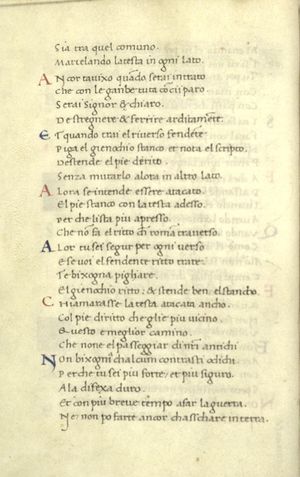 Sia tra quel comuno.
Marcelando latesta in ogni lato.
ANcor tauixo quãdo serai intrato
Che con le gãbe tuta cõcii paro
Serai Signor & chiaro.
De stregnere & ferrire arditamẽte.
ET quando trai el riuerso fendẽte:
Piga el gienochio stanco et nota el scripto.
Destende el pie dirito.
Senza mutarlo alora in altro lato.
ALora se intende essere atacato
El pie stanco con latesta adesso.
Per che lista piu apresso.
Che no fa el ritto chi romã trauerso.
ALor tu sei segur per ogni uerso
E se uoi el fendente ritto trare
Te bixogna pigliare.
El gienchio ritto: & stende ben el stancho.
CHiamarasse latesta atacata ancho.
Col pie diritto che glie piu uicino.
& uesto e meglior camino.
Che none el passeggiar di nr̃i antichi
NOn bixogna chalcun contrasti o dichi
Per che tu sei piu forte: et piu siguro.
A la difexa duro.
Et con piu breue tẽpo afar la guerra.
Ne: non po farte ancor chasschare in terra.